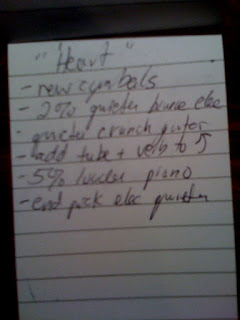 "Heart"
- new cymbals
- 2% quieter elec
- quieter crunch guitar
- add tube + verb to
- 5% louder piano
- end elec quieter